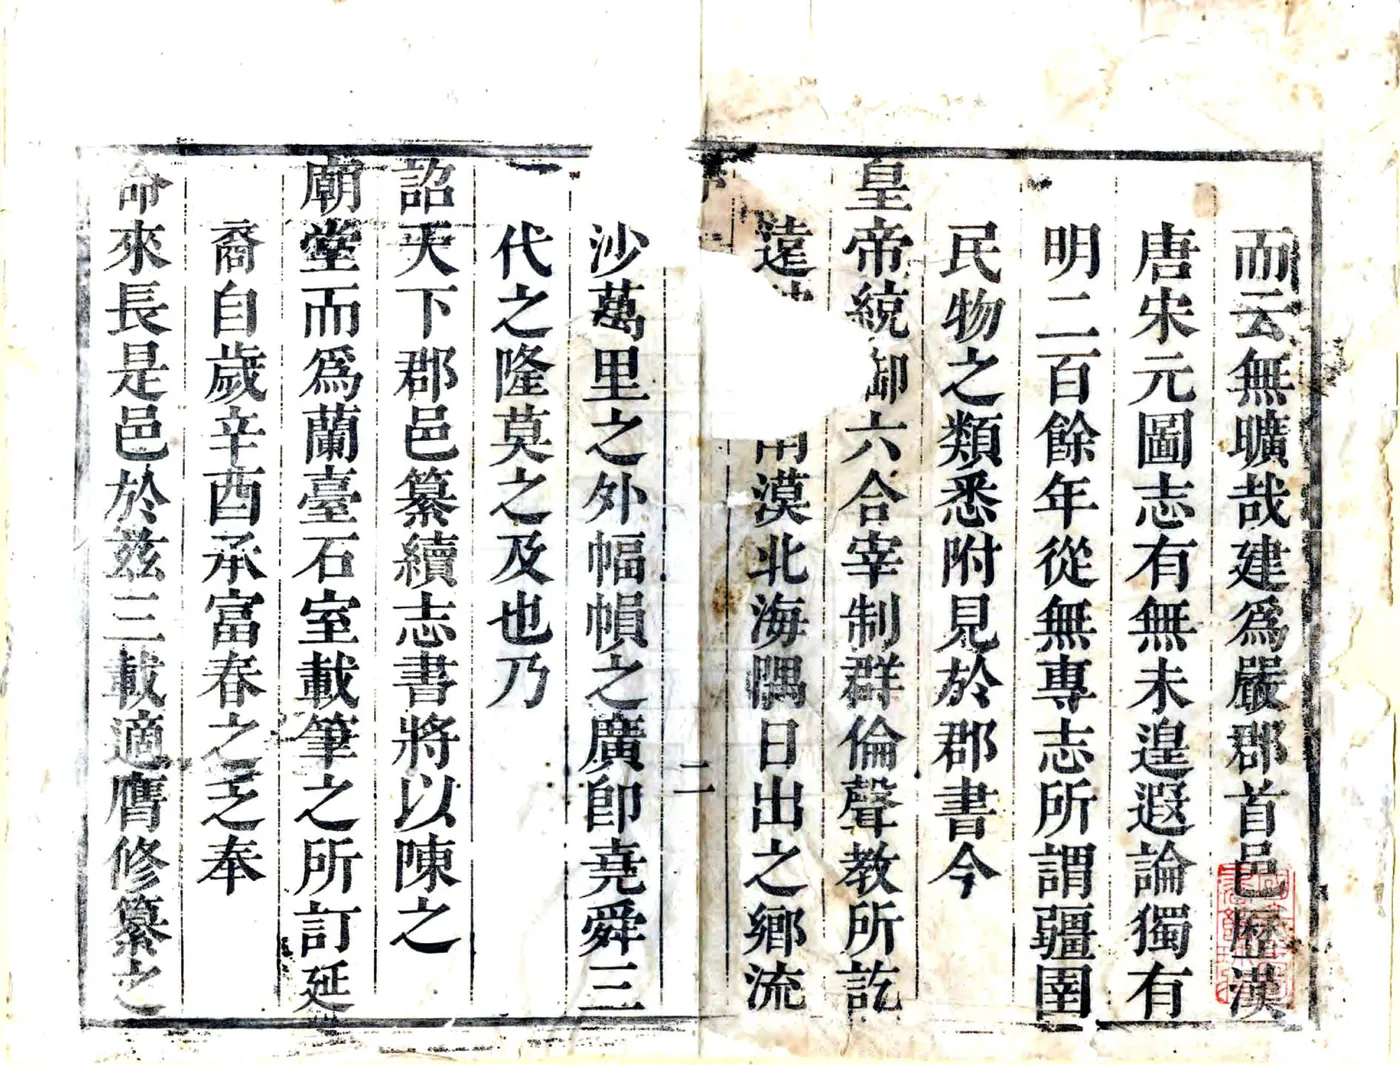 而云無曠哉建爲嚴郡首邑歷漢
唐宋元圖志有無未遑遐論獨有
明二百餘年從無專志所謂疆圉
民物之類悉附見於郡書今
皇帝統御六合宰制群倫聲教所訖
遠南漠北海隅日出之鄉流
二
沙萬里之外幅幀之廣卽堯舜三
代之隆莫之及也乃
詔天下郡邑纂續志書將以陳之
廟堂而爲蘭臺石室載筆之所訂延
裔自歲辛酉承富春之乏奉
命來長是邑於茲三載適膺修纂之